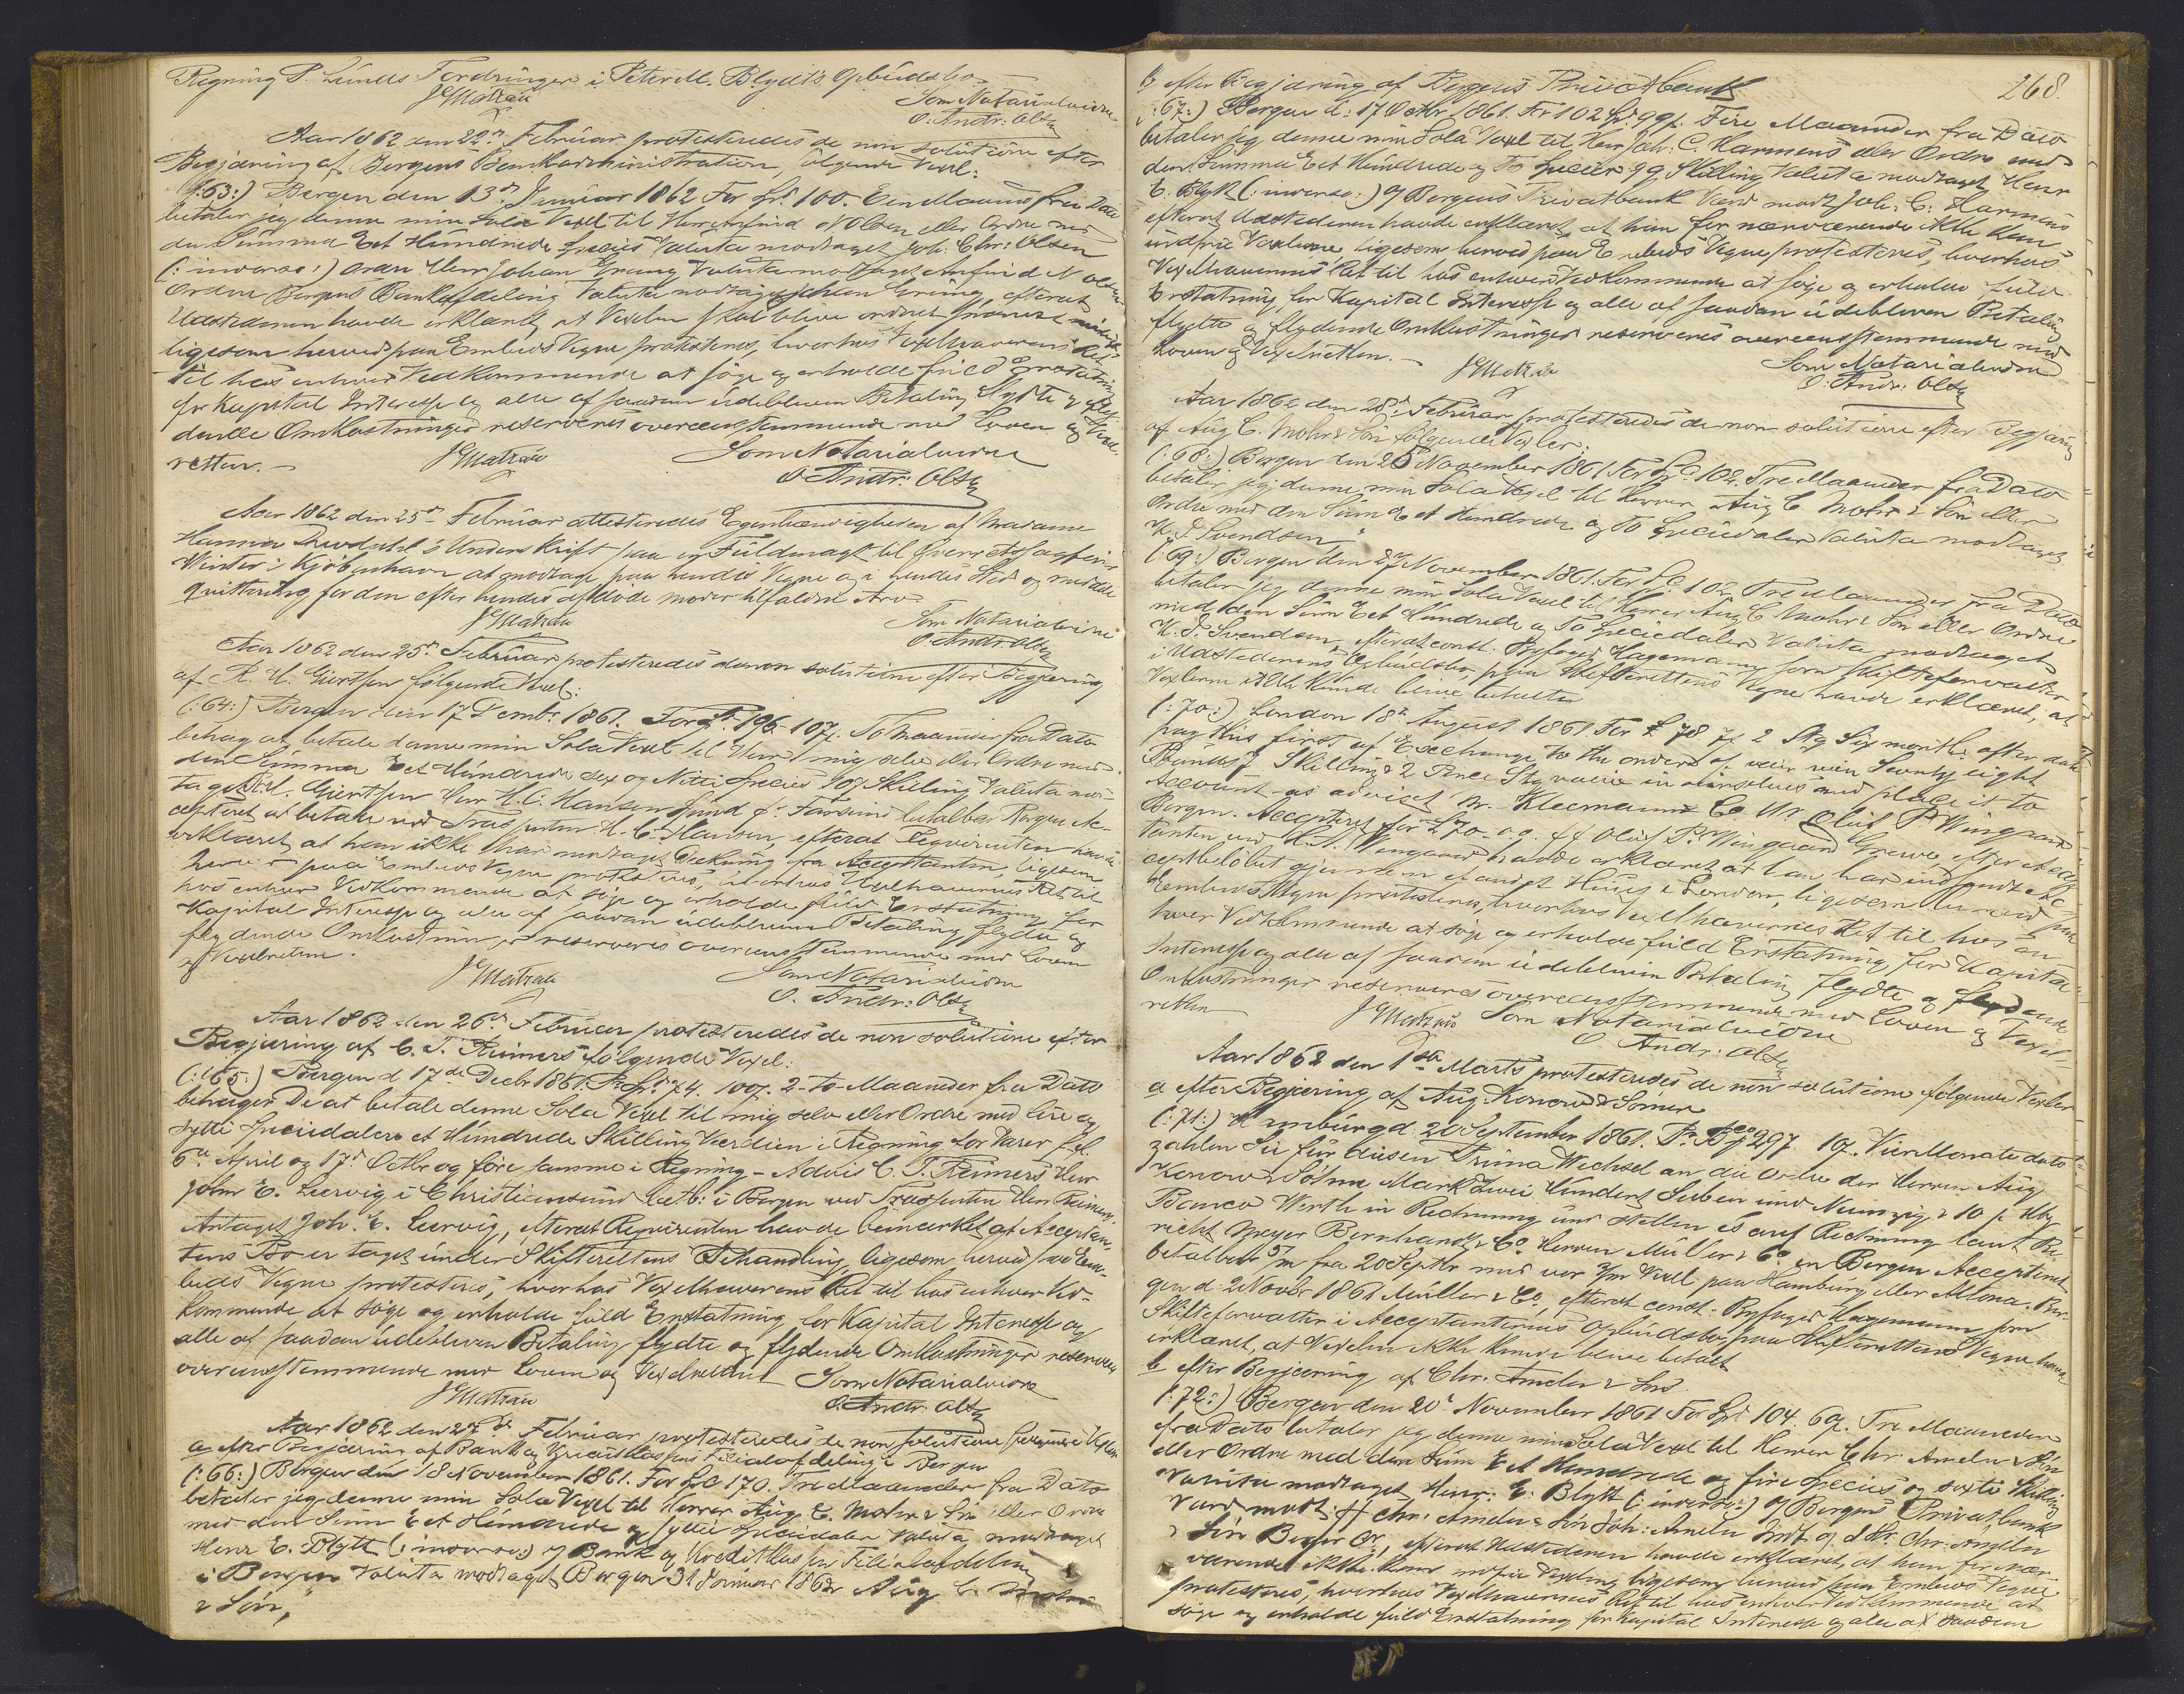 Regning P. Lunds Fordringer i Peter M. Blydts Opbudsbo.
JGMatzau Som Notarialvidne
O. Andr: Olsen
Aar 1862 den 22de Februar protesteredes de non solutione efter
Begjæring af Bergens Bankadministration, følgende Vexel:
(:63:) Bergen den 13de Januar 1862 For Spd. 100. Een Maaned fra Dato
betaler jeg denne min Sola Vexel til Herr Amfind N Olsen eller Ordre med
den Summa Eet Hundrede Species Valuta modtaget Joh. Chr: Olsen
(:inverso:) Ordre Herr Johan Grung Valuta modtaget Amfind N Olsen
Ordre Bergens Bankafdeling Valuta modtaget Johan Grung, efterat
Udstederen havde erklæret, at Vexelen skal blive ordnet
ligesom herved paa Embeds Vegne protesteres, hvorhos Vexelhaverens Ret
til hos enhver Vedkommende at søge og erholde fuld Erstatning
for Kapital Interesse og alle af saadan udebleven Betaling flydte og fly-
dende Omkostninger reserveres overeensstemmende med Loven og Vexel-
retten.
JGMatzau Som Notarialvidne
O Andr: Olsen
Aar 1862 den 25de Februar attesteredes Egenhændigheden af Madame
Hanna Underskrift paa en Fuldmagt til Overretssagfører
Winter i Kjøbenhavn at modtage paa hendes Vegne og i hendes Sted og meddele
Quittering for den efter hendes afdøde Moder tilfaldne Arv.
JGMatzau Som Notarialvidne
O Andr: Olsen
Aar 1862 den 25de Februar protesteredes de non solutione efter Begjæring
af R. U. Giertsen følgende Vexel:
(:64:) Bergen den 17 Decmbr 1861. For Spd. 196. 107s. To Maaneder fra Dato
behag at betale denne min Sola Vexel til Herr mig selv eller Ordre med
den Summa Eet Hundrede sex og Nitti Species 107 Skilling Valuta mod-
taget R.U. Giertsen Herr H. C. Hansen betalbar Bergen Ac-
cepteret at betale ved Trassenten H. C. Hansen, efterat Requirenten havde
erklæret, at han ikke har modtaget Dækning fra Acceptanten, ligesom
herved paa Embeds Vegne protesteres, hvorhos Vexelhaverens Ret til
hos enhver Vedkommende at søge og erholde fuld Erstatning for
Kapital Interesse og alle af saadan udebleven Betaling flydte og
flydende Omkostninger reserveres overeensstemmende med Loven
og Vexelretten.
JGMatzau Som Notarialvidne
O. Andr: Olsen
Aar 1862 den 26de Februar protesteredes de non solutione efter
Begjæring af C. T. Reimers følgende Vexel:
(:65:) Bergen d 17de Decbr 1861. Pr Spd. 74. 100s. 2-to-Maaneder fra Dato
behager De at betale denne Sola Vexel til mig selv eller Ordre med fire og
sytti Speciedaler et Hundrede Skilling Værdien i Regning for Varer
6te April og 17de Octbr og føre samme i Regning - Advis C. T. Reimers, Herr
John E. Lervig i Christiansund betb: i Bergen ved Trassenten Herr Reimers,
Antaget Joh. E. Lervig, efterat Requirenten havde bemærket at Acceptan-
tens Bo er taget under Skifterettens Behandling, ligesom herved paa Em-
beds Vegne protesteres, hvorhos Vexelhaverens Ret til hos enhver Ved-
kommende at søge og erholde fuld Erstatning for Kapital Interesse og
alle af saadan udebleven Betaling flydte og flydende Omkostninger reserveres
overeensstemmende med Loven og Vexelretten
JGMatzau Som Notarialvidne
O. Andr: Olsen
Aar 1862 den 27de Februar protesteredes de non solutione følgende Vexler
a efter Begjæring af Bank og Kreditkassens Filialafdeling i Bergen
(:66:) Bergen den 18 November 1861. For Spd 170. Tre Maaneder fra Dato
betaler jeg denne min Sola Vexel til Herrer Aug. C. Mohr & Søn eller Ordre
med den Sum Eet Hundrede og sytti Speciedaler Valuta modtaget
Henr E. Blytt (:inverso:) og Bank og Kreditkassens Filialafdeling
i Bergen Valuta modtaget Bergen 31 Januar 1862 Aug C. Mohr
& Søn,
268.
b efter Begjæring af Bergens Privatbank
(:67:) Bergen d: 17 Octbr 1861. For 102 Spd. 99s. Fire Maaneder fra Dato
betaler jeg denne min Sola Vexel til Herr Joh: C. Harmens eller Ordre med
den Summa Eet Hundrede og To Species 99 Skilling Valuta modtaget Henr
E. Blytt (:inverso:) og Bergens Privatbank Værd modt Joh: C: Harmens
efterat Udstederen havde erklæret, at han for nærværende ikke kan
indfrie Vexelen, ligesom herved paa Embeds Vegne protesteres, hvorhos
Vexelhaverens Ret til hos enhver Vedkommende at søge og erholde fuld
Erstatning for Kapital Interesse og alle af saadan udebleven Betaling
flydte og flydende Omkostninger reserveres overeensstemmende med
Loven og Vexelretten.
JGMatzau Som Notarialvidne
O. Andr: Olsen
Aar 1862 den 28de Februar protesteredes de non solutione efter Begjæring
af Aug C. Mohr & Søn følgende Vexler:
(:68:) Bergen den 25 November 1861 For Spd. 102. Tre Maaneder fra Dato
betaler jeg denne min Sola Vexel til Herrer Aug C Mohr & Søn eller
Ordre med den Sum Eet Hundrede og To Speciedaler Valuta modtaget
K. J. Svendsen
(:69:) Bergen den 27 November 1861. For Spd. 102 Tre Maaneder fra Dato
betaler jeg denne min Sola Vexel til Herrer Aug C Mohr & Søn eller Ordre
med den Sum Eet Hundrede og To Speciedaler Valuta modtaget
K. J. Svendsen, efterat const. Byfoged Hagemann som Skifteforvalter
i Udstederens Opbudsbo, paa Skifterettens Vegne havde erklæret, at
Vexlerne ikke kunde blive betalte
(:70:) London 18th August 1861 For £ 78 7s 2 Stg Six months after date
pay this first of Exchange to the order of Seventy eight
Pounds 7 Skilling & 2 Pence Stg value in ourselves and place it to
Account as advised W. Kleemann & Co Mr Oluf P. Wingaard
Bergen. Accepteret for £70. 0. 0. Oluf P. Wingaard Greve, efterat Accep
tanten ved H. A. Wingaard havde erklæret at han har indsendt Ac-
ceptbeløbet gjennem et andet Huus i London, ligesom herved paa
Embeds Vegne protesteres, hvorhos Vexelhaverens Ret til hos en-
hver Vedkommende at søge og erholde fuld Erstatning for Kapital
Interesse og alle af saadan udebleven Betaling flydte og flydende
Omkostninger reserveres overeensstemmende med Loven og Vexel-
retten
JGMatzau Som Notarialvidne
O Andr: Olsen
Aar 1862 den 1ste Marts protesteredes de non solutione følgende Vexler
a efter Begjæring af Aug. Konow & Sønner
(:71:) Hamburg d: 20 September 1861. Pr Bco 297 10s. Vier Monate dato
zahlen Sie für diesen Prima Wechsel an die Ordre der Herren Aug
Konow & Söhne Mark Zwei Hundert Sieben und Neunzig & 10 s Hbg
Banco Werth in Rechnung und stellen es auf Rechnung laut Be-
richt Meyer Bernhardt & Co. Herren Müller & Co. en Bergen Accepteret
betalbar fra 20 Septbr med vor Vexel paa Hamburg eller Altona. Ber-
gen d: 2 Novbr 1861 Müller & Co, efterat const. Byfoged Hagemann som
Skifteforvalter i Acceptanternes Opbudsbo paa Skifterettens Vegne havde
erklæret, at Vexelen ikke kunde blive betalt
b efter Begjæring af Chr. Ameln & Søn.
(:72:) Bergen den 20de November 1861 For Spd 104. 60s. Tre Maaneder
fra Dato betaler jeg denne min Sola Vexel til Herrer Chr. Ameln & Søn
eller Ordre med den Sum Eet Hundrede og fire Species og sexti Skilling
Valuta modtaget Henr: E. Blytt (:inverso:) og Bergens Privatbank
Værd modt: Chr. Ameln & Søn Joh: Ameln Chr. Ameln
& Søn Bergen, efterat Udstederen havde erklæret, at han for nær-
værende ikke kan indfrie Vexelen, ligesom herved paa Embeds Vegne
protesteres, hvorhos Vexelhaverens Ret til hos enhver Vedkommende at
søge og erholde fuld Erstatning for Kapital Interesse og alle af saadan